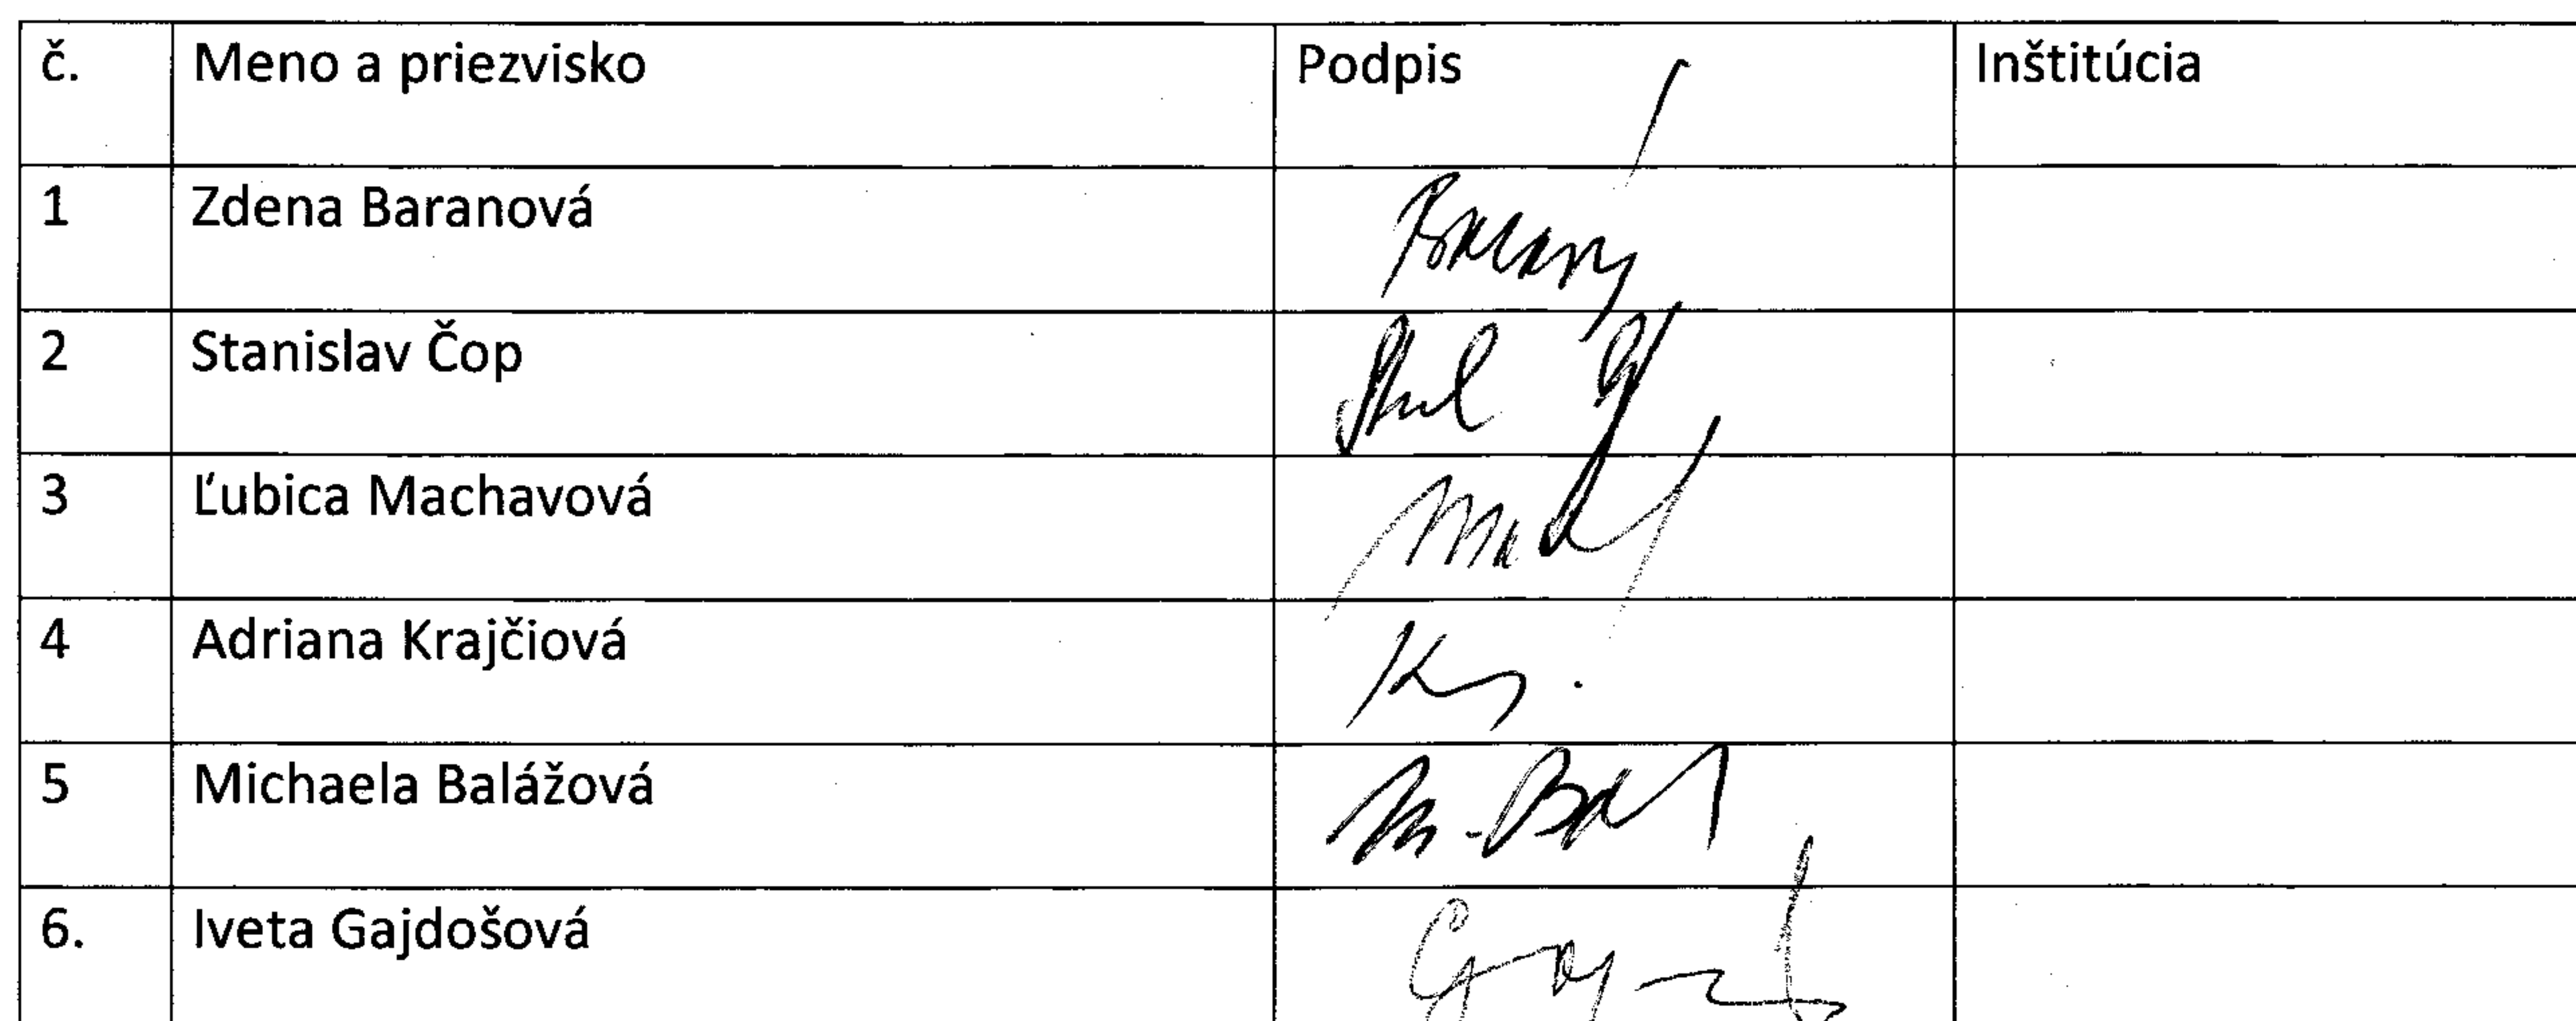 č. Meno a priezvisko Podpis Inštitúcia
1 Zdena Baranová
2 Stanislav Čop
3 Ľubica Machavová
4 Adriana Krajčiová
5 Michaela Balážová
6. Iveta Gajdošová